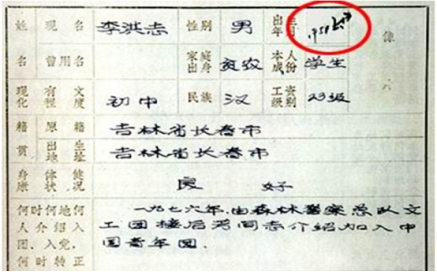 姓 现名 李洪志 性别 男 出生年月 像
名 曾用名 家庭出身 贫农 本人成份 学生
现有文化程度 初中 民族 汉 工资级别 23级
籍 原籍 吉林省长春市
贯 出生地址 吉林省长春市
身体健康状况 良 好
何时何地何 一九七六年,由森林警察总队文
人介绍入 工团 同志介绍加入中
团、入党, 国青年团.
何时转正